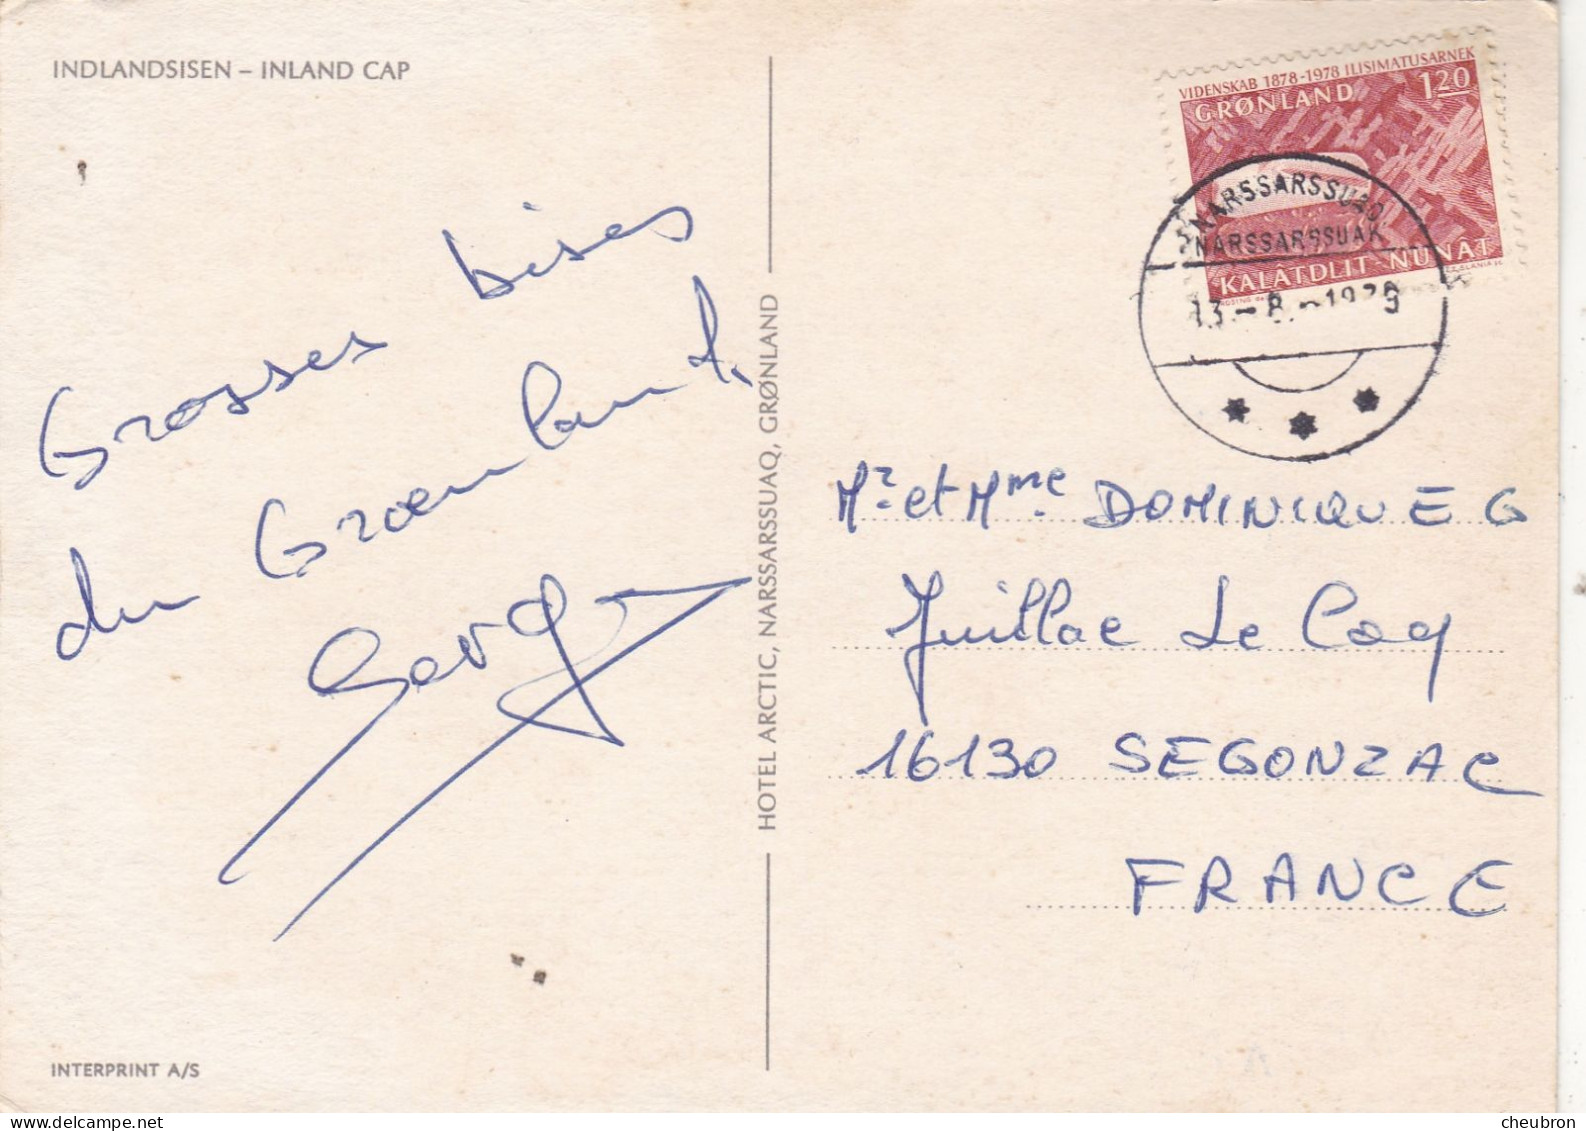 INDLANDSISEN – INLAND CAP
VIDENSKAB 1878-1978 ILISIMATUSARNEK
GRØNLAND 120
KALÂTDLIT-NUNÂT
NARSSARSSUAQ
NARSSARSSUAK
13.-8.-1979
Grosses bises
du Groenland.
Serge
HOTEL ARCTIC, NARSSARSSUAQ, GRØNLAND
Mr. et Mme DOMINIQUE G
Juillac Le Coq
16130 SEGONZAC
FRANCE
INTERPRINT A/S
cheubron